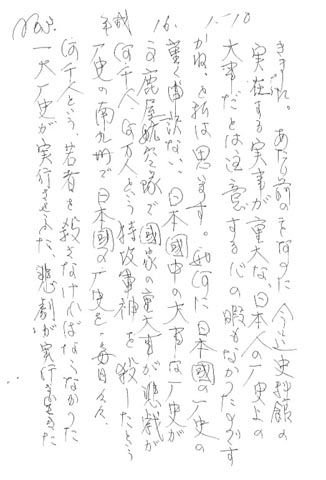 No3.
平成 16. 1.-10
きます。 あたり前の事なのに 今迄史料館の
実在する実事が重大な日本人の歴史上の
大事だとは注意する心の暇もなかったのです
かね、と私は思います。 如何に日本國の歴史の
重く申訳ない、日本國中の大事な歴史が
この鹿屋航空隊で國家の重大事が悲劇が
何千人何万人という特攻軍神を殺したという
歴史の南九州で日本國の歴史を毎日々々
何千人という、若者を殺さなければならなかった
一大歴史が実行された、悲劇が実行されて来た